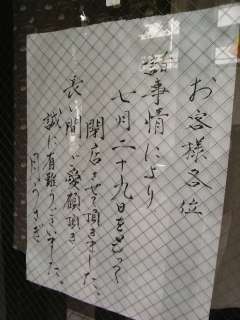 お客様各位
諸事情により
七月二十九日をもって
閉店させて頂きました。
長い間ご愛顧頂き
誠に有難うございました。
月うさぎ